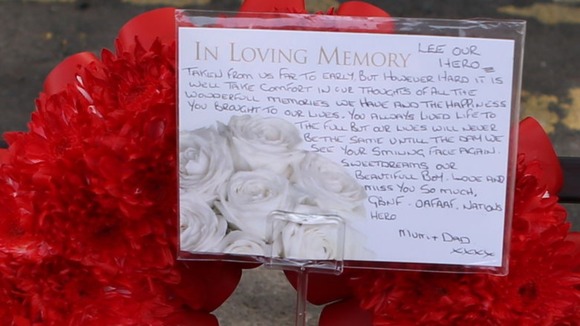 IN LOVING MEMORY LEE OUR
HERO
TAKEN FROM US FAR TO EARLY, BUT HOWEVER HARD IT IS
WELL TAKE COMFORT IN OUR THOUGHTS OF ALL THE
WONDERFUL MEMORIES WE HAVE AND THE HAPPINESS
YOU BROUGHT TO OUR LIVES. YOU ALWAYS LIVED LIFE TO
THE FULL BUT OUR LIVES WILL NEVER
BE THE SAME UNTIL THE DAY WE
SEE YOUR SMILING FACE AGAIN.
SWEETDREAMS OUR
BEAUTIFUL BOY. LOVE AND
MISS YOU SO MUCH,
GBNF. OAFAAF. NATIONS
HERO
MUM + DAD
xxxx